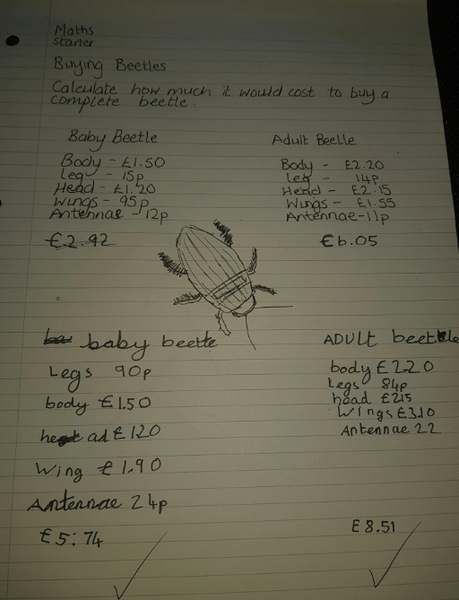 Maths
starter
Buying Beetles
Calculate how much it would cost to buy a
complete beetle.
Baby Beetle
Body - £1.50
Leg - 15p
Head - £1.20
Wings - 95p
Antennae - 12p
£2.92
Adult Beetle
Body - £2.20
Leg - 14p
Head - £2.15
Wings - £1.55
Antennae - 11p
£6.05
baby beetle
Legs 90p
body £1.50
head £1.20
Wing £1.90
Antennae 24p
£5:74
ADULT beetle
body £2.20
legs 84p
head £2.15
Wings £3.10
Antennae 22
£8.51